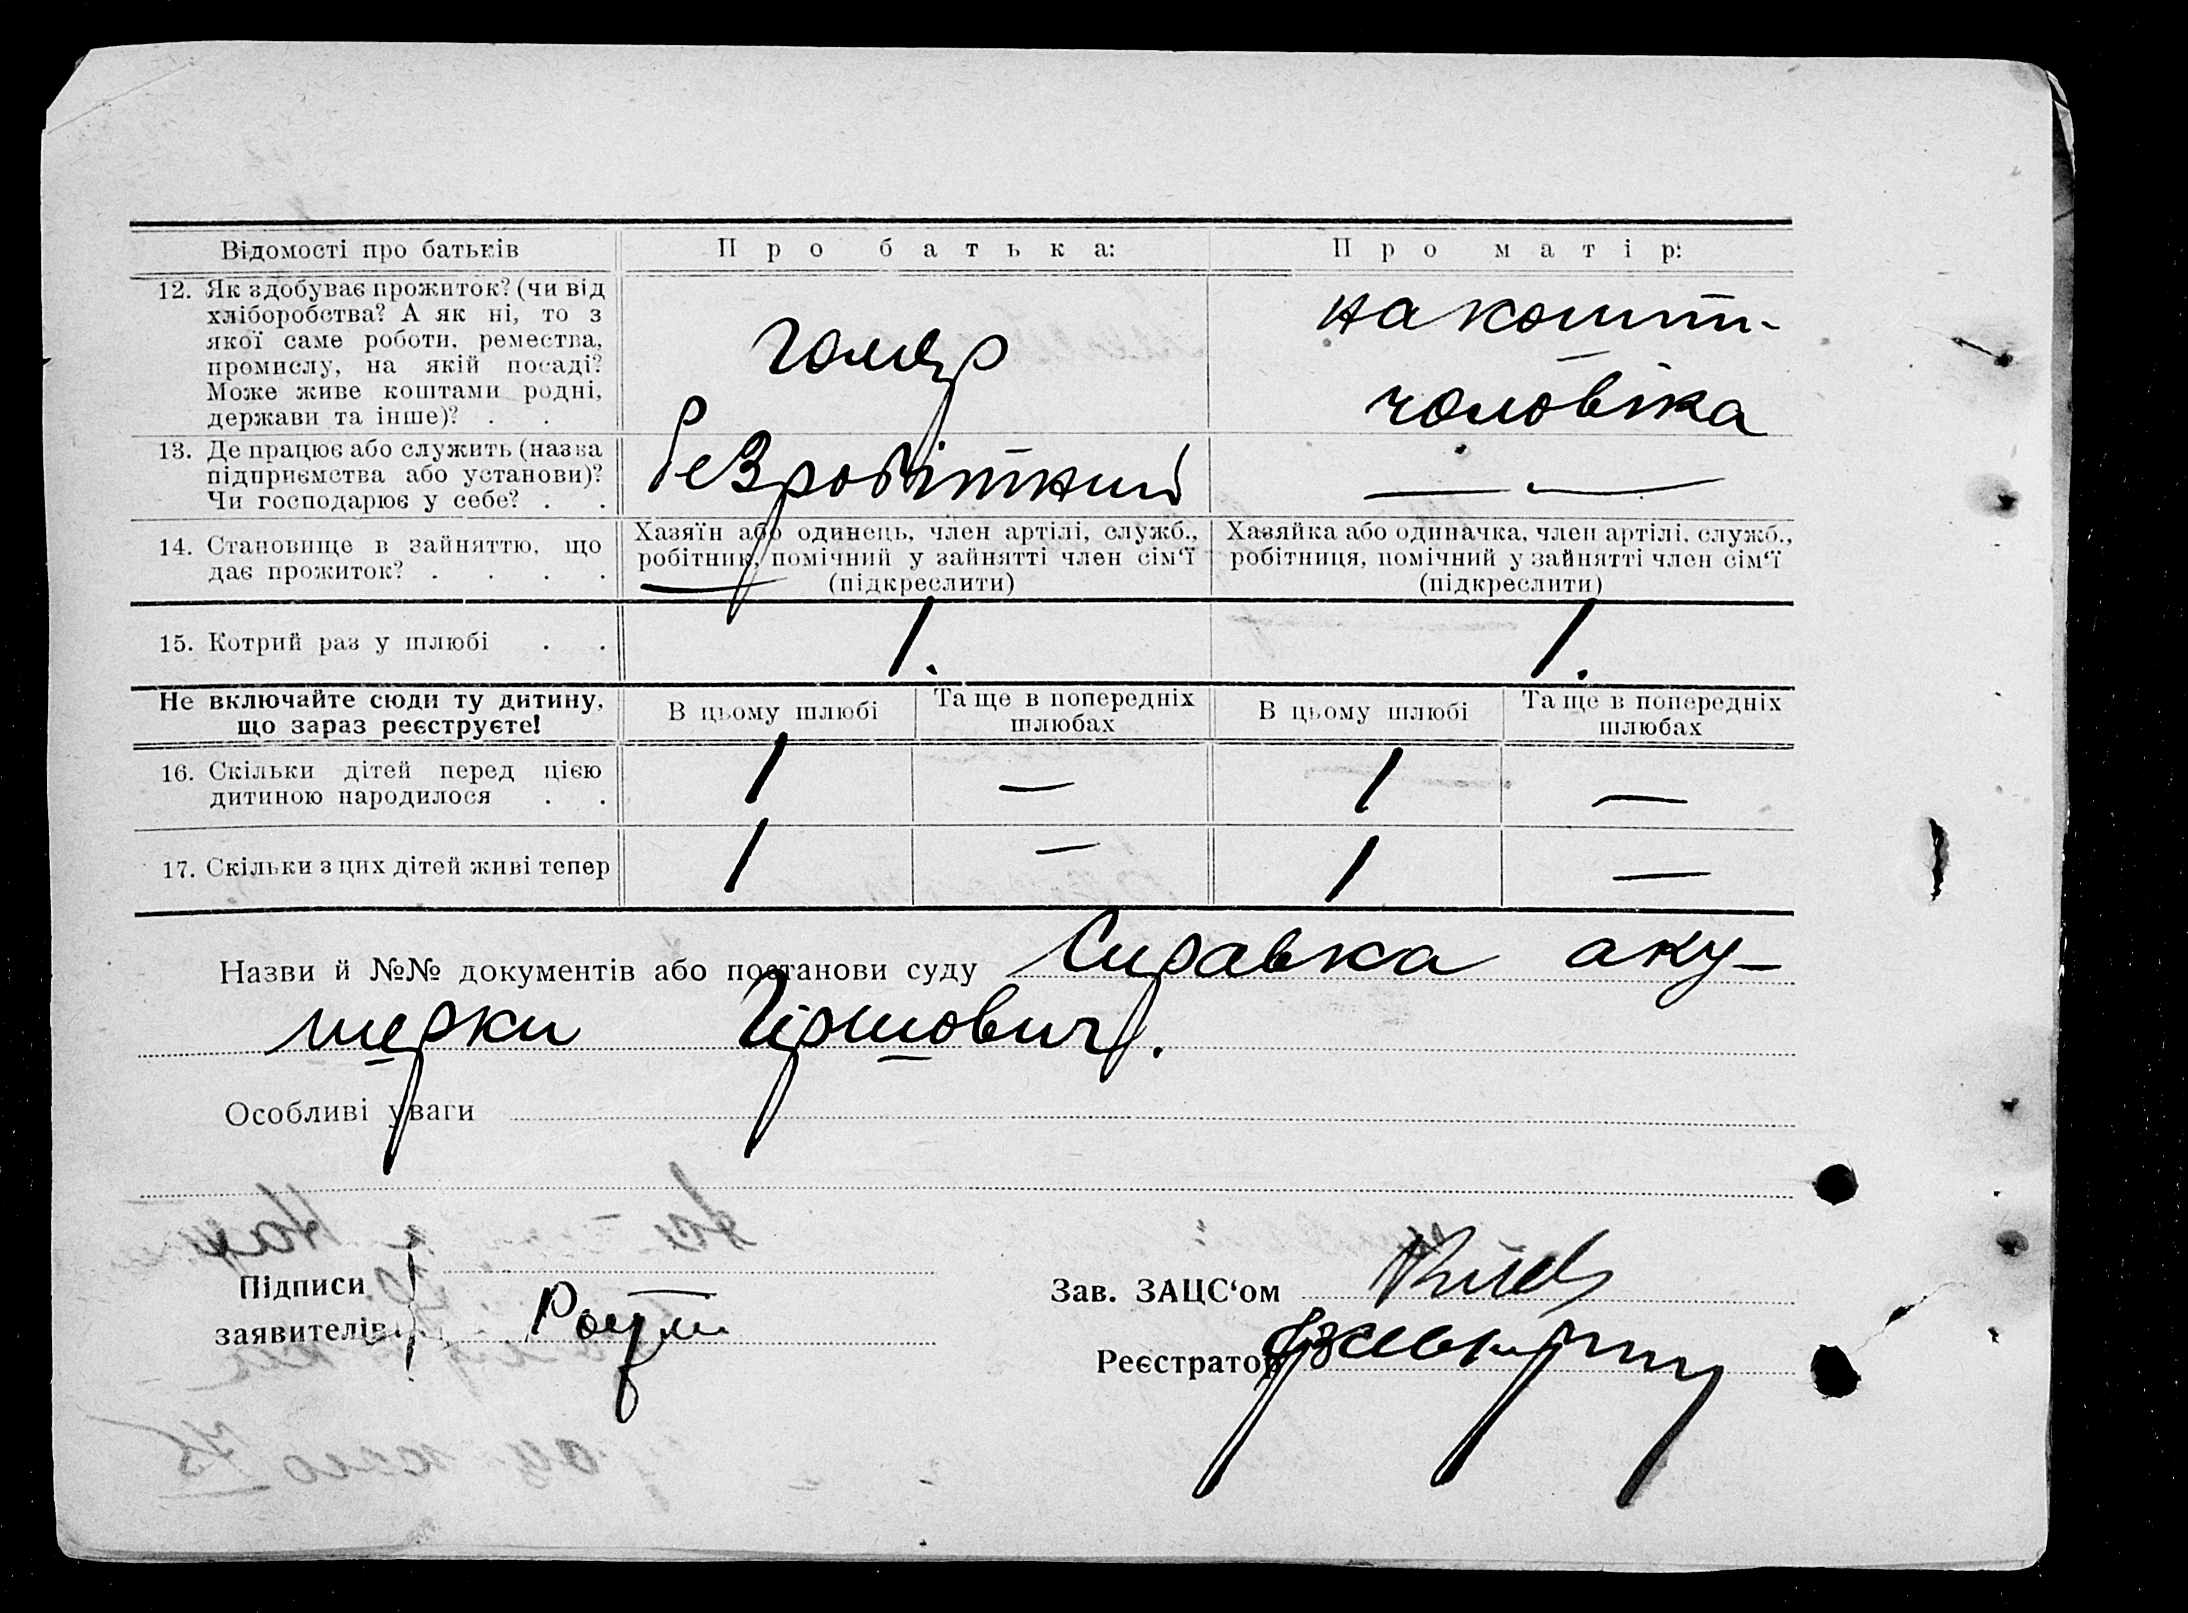 Відомості про батьків
Про батька:
Про матір:
12. Як здобуває прожиток? (чи від
хліборобства? А як ні, то з
якої саме роботи, ремества,
промислу, на якій посаді?
Може живе коштами родні,
держави та інше)? . .
на кошти
чоловіка
13. Де працює або служить (назва
підприємства або установи)?
Чи господарює у себе? . .
безробітний
— —
14. Становище в зайняттю, що
дає прожиток? . . . .
Хазяїн або одинець, член артілі, служб.,
робітник, помічний у зайнятті член сім‘ї
(підкреслити)
Хазяйка або одиначка, член артілі, служб.,
робітниця, помічний у зайнятті член сім‘ї
(підкреслити)
15. Котрий раз у шлюбі . .
1.
1.
Не включайте сюди ту дитину,
що зараз реєструєте!
В цьому шлюбі
Та ще в попередніх
шлюбах
В цьому шлюбі
Та ще в попередніх
шлюбах
16. Скільки дітей перед цією
дитиною народилося . .
1 — 1 —
17. Скільки з цих дітей живі тепер
1 — 1 —
Назви й №№ документів або постанови суду Справка аку-
шерки Гіршович.
Особливі уваги
Підписи
заявителів
Зав. ЗАЦС‘ом
Реєстратор